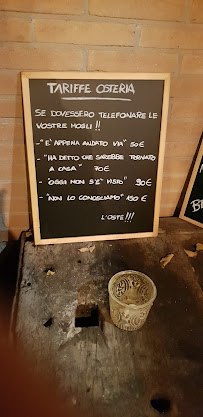 TARIFFE OSTERIA
SE DOVESSERO TELEFONARE LE
VOSTRE MOGLI!!
-"E' APPENA ANDATO VIA" 50€
-"HA DETTO CHE SAREBBE TORNATO
A CASA" 70€
-"OGGI NON S'E' VISTO" 90€
-"NON LO CONOSCIAMO" 150€
L'OSTE!!!